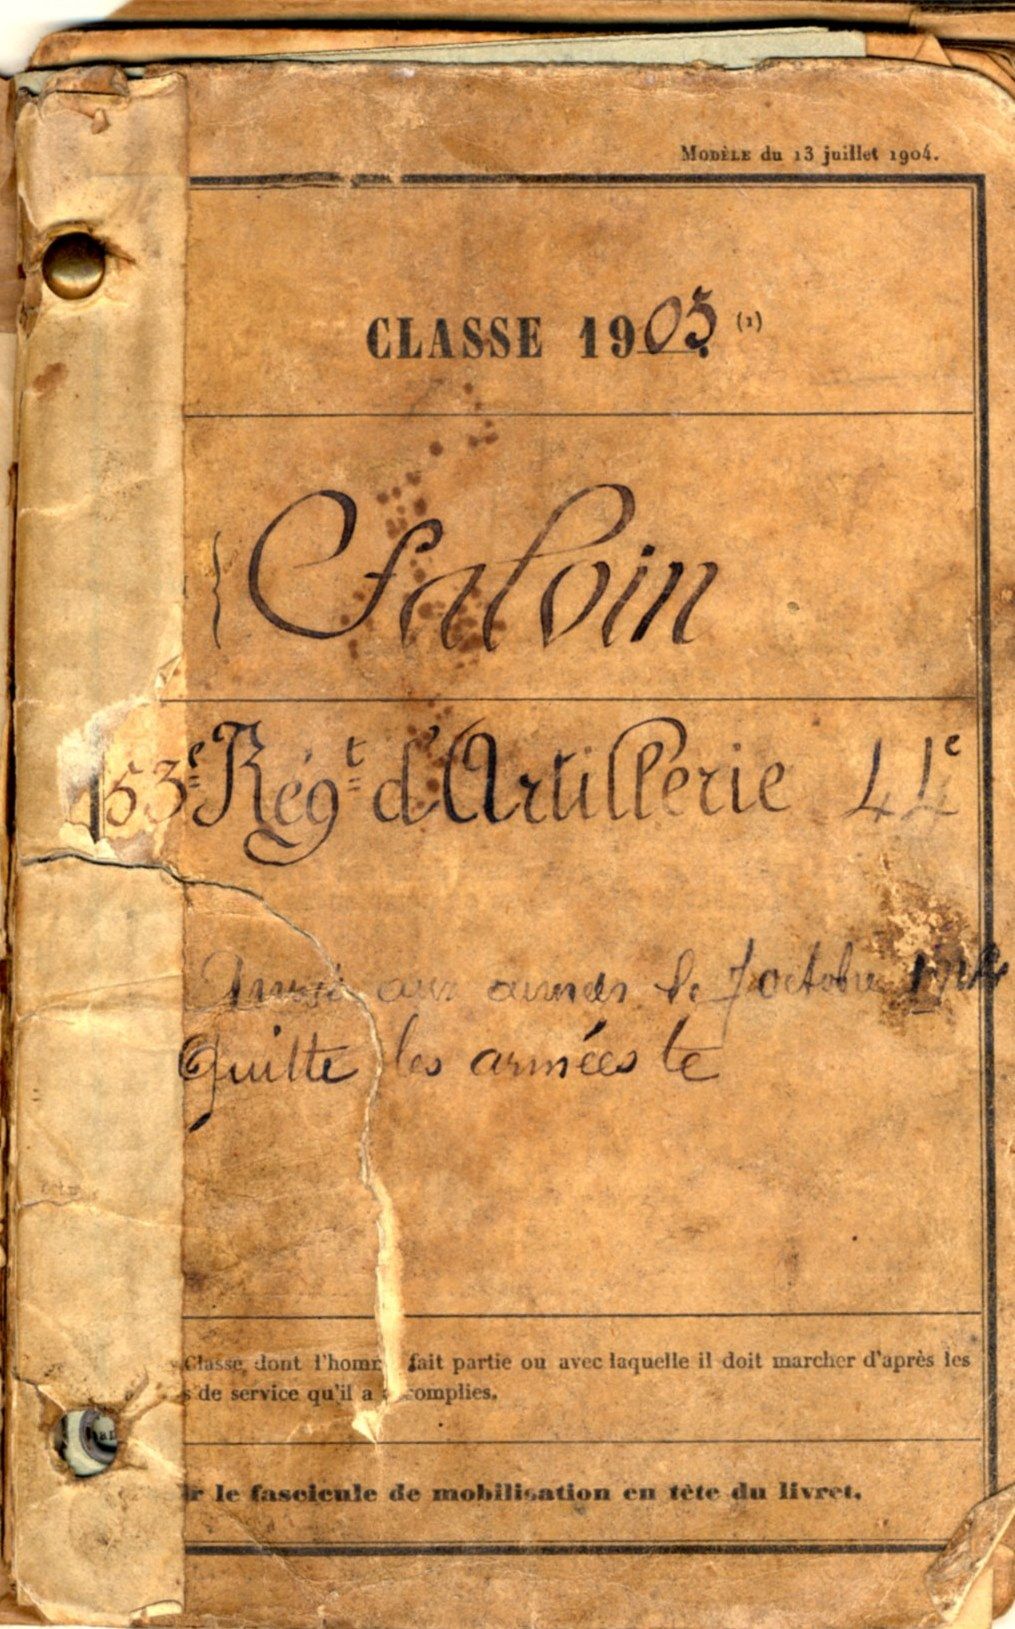 MODÈLE du 13 juillet 1904.
CLASSE 1903 (1)
Chalvin
53e Régt d'Artillerie 44e
aux armées le 7 octobre
Quitte les armées le
Classe dont l'hom fait partie ou avec laquelle il doit marcher d'après les
s de service qu'il a complies.
r le fascicule de mobilisation en tête du livret.